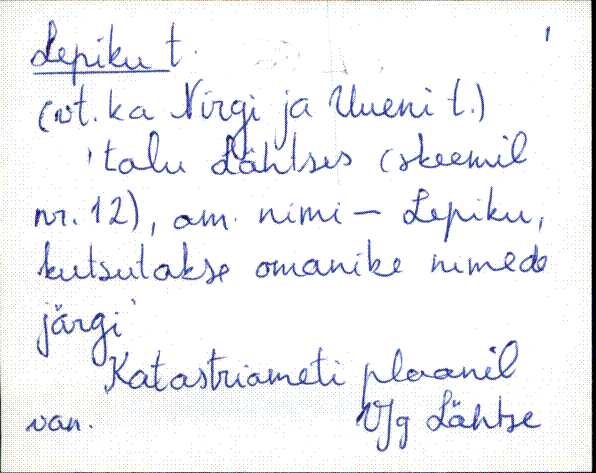 Lepiku t.
(vt. ka Nirgi ja Uueni t.)
'talu Lähtses (skeemil
nr. 12), am. nimi – Lepiku,
kutsutakse omanike nimede
järgi'
Katastriameti plaanil
van. V/g Lähtse